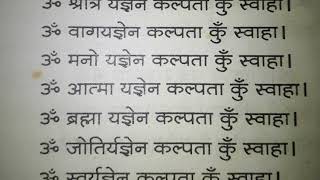 ॐ श्रोत्रं यज्ञेन कल्पता कुँ स्वाहा।
ॐ वागयज्ञेन कल्पता कुँ स्वाहा।
ॐ मनो यज्ञेन कल्पता कुँ स्वाहा।
ॐ आत्मा यज्ञेन कल्पता कुँ स्वाहा।
ॐ ब्रह्मा यज्ञेन कल्पता कुँ स्वाहा।
ॐ जोतिर्यज्ञेन कल्पता कुँ स्वाहा।
ॐ स्वर्यज्ञेन कल्पता कुँ स्वाहा।